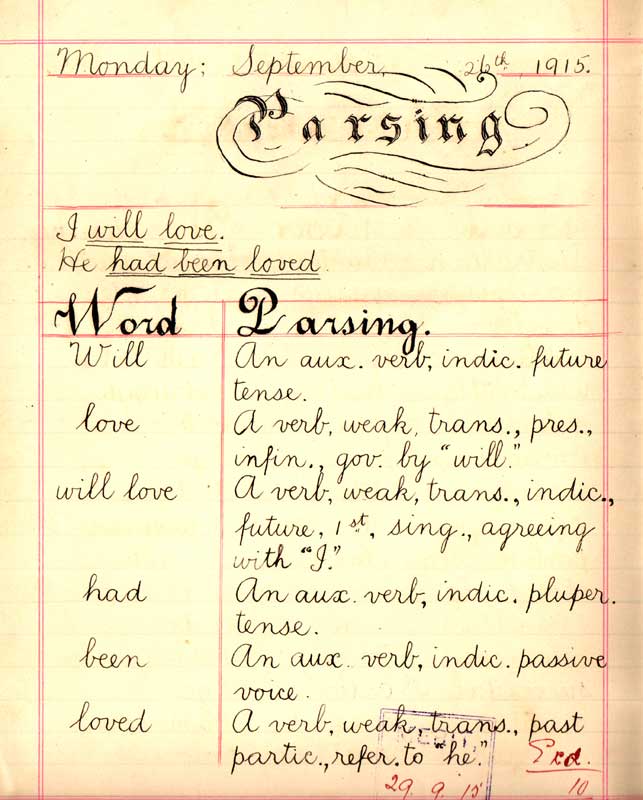 Monday; September, 26th, 1915.
Parsing
I will love.
He had been loved.
Word Parsing.
Will An aux. verb, indic. future
tense.
love A verb, weak, trans., pres.,
infin., gov. by "will."
will love A verb, weak, trans., indic.,
future, 1st, sing., agreeing
with "I."
had An aux. verb, indic. pluper.
tense.
been An aux. verb, indic. passive
voice.
loved A verb, weak, trans., past
partic., refer. to "he."
10
29.9.15